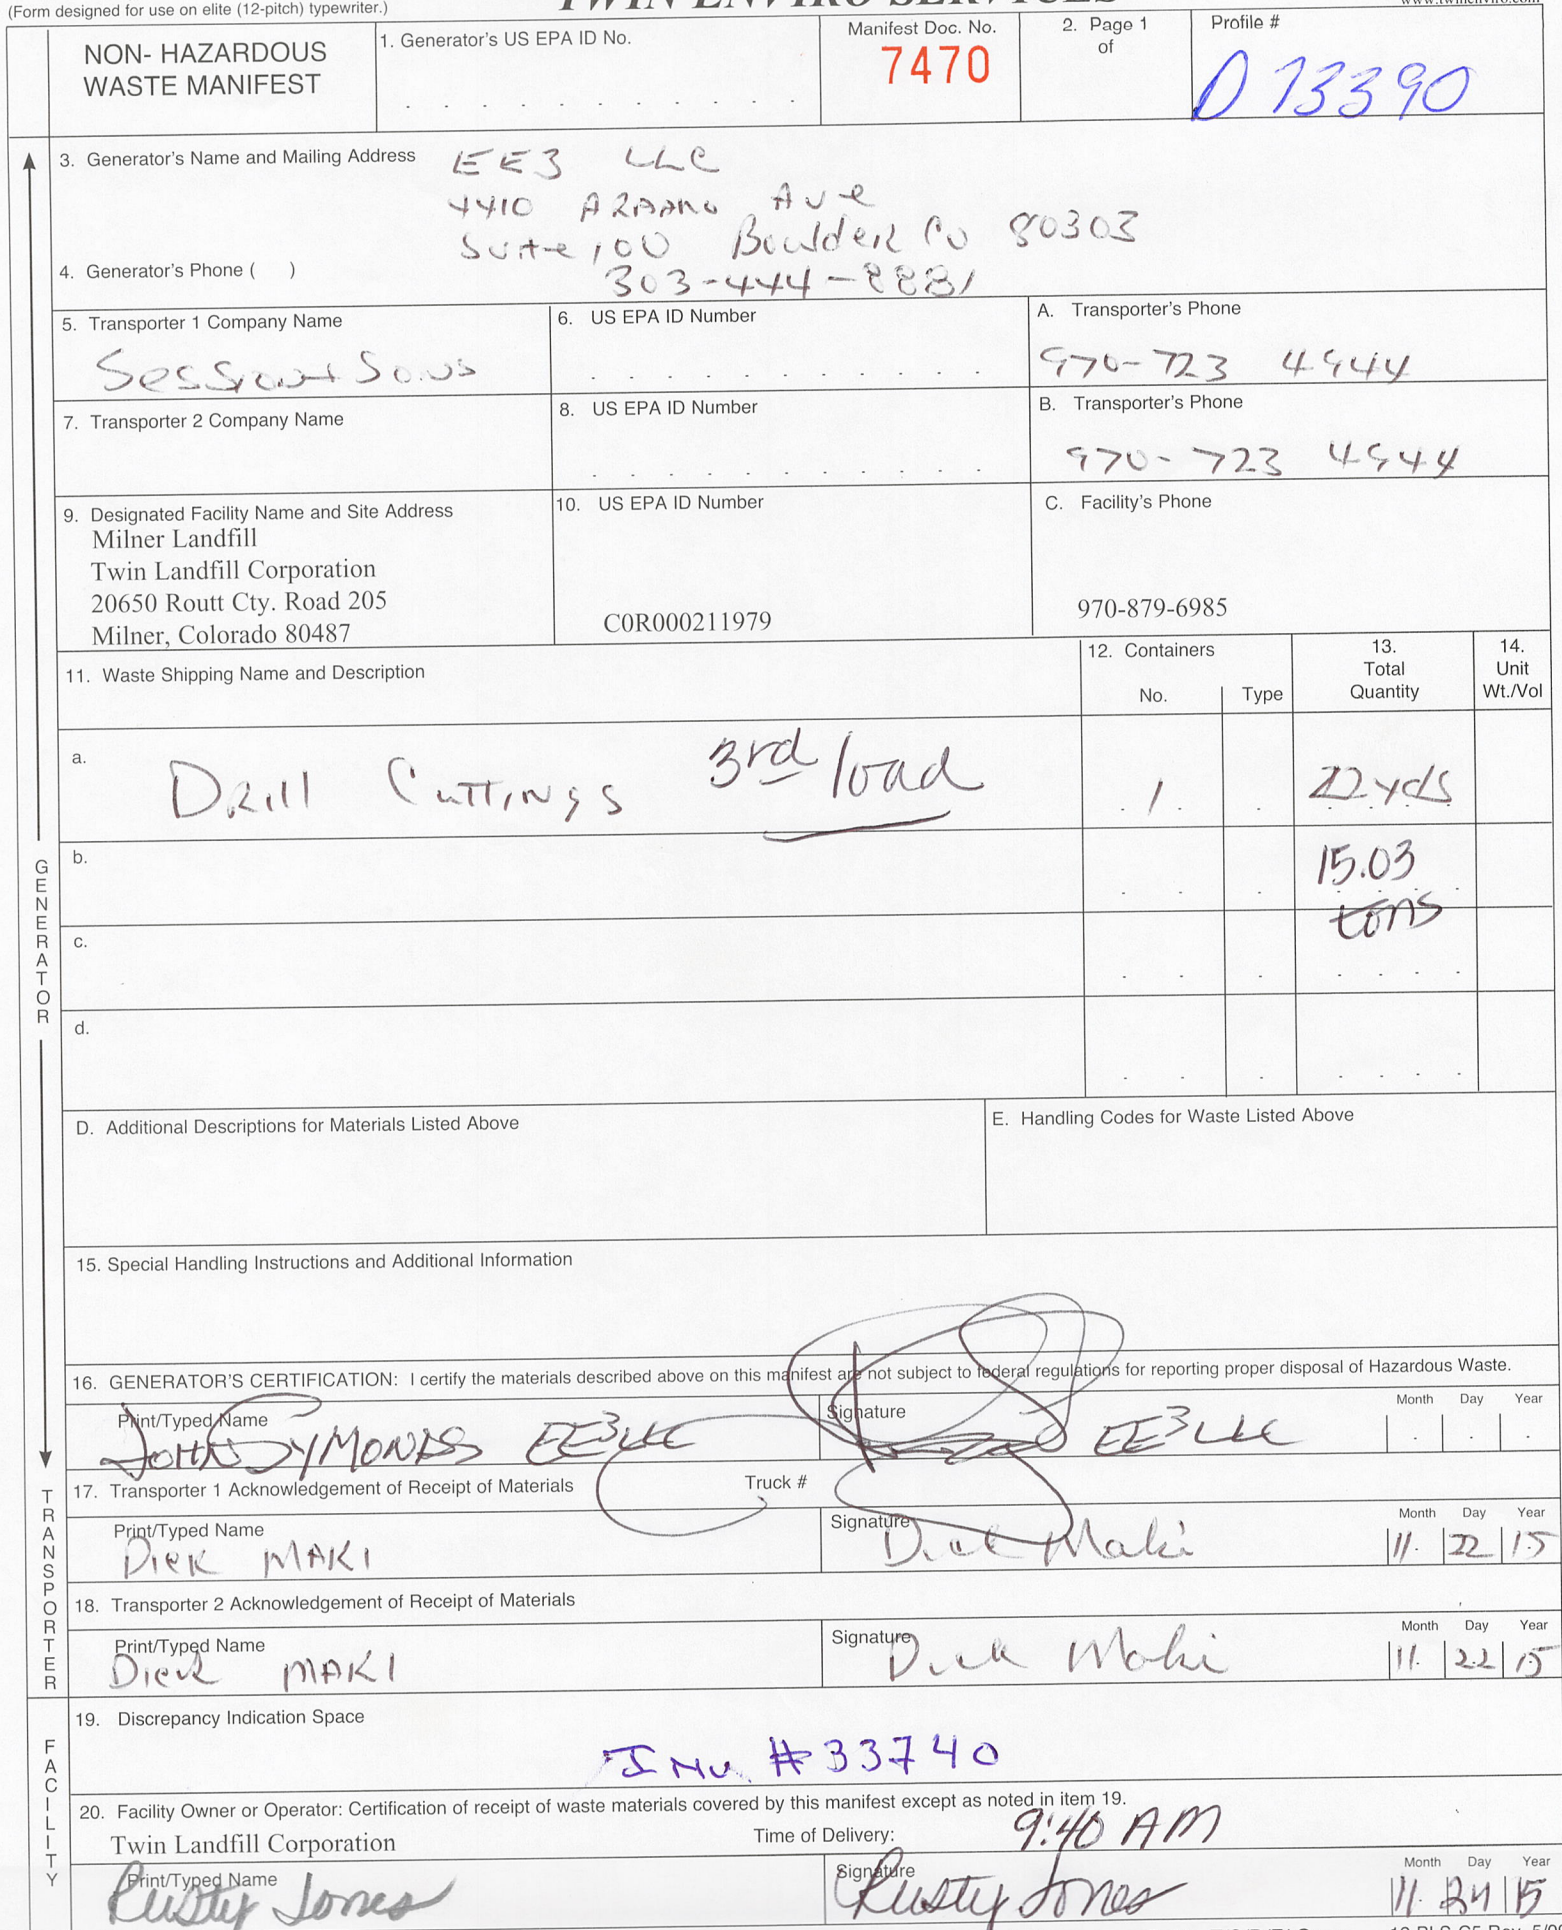 (Form designed for use on elite (12-pitch) typewriter.)
TWIN ENVIRO SERVICES
www.twinenviro.com
NON- HAZARDOUS
WASTE MANIFEST
1. Generator's US EPA ID No.
Manifest Doc. No.
7470
2. Page 1
of
Profile #
D 13390
3. Generator's Name and Mailing Address
EE3 LLC
4410 Ave
Suite 100 Boulder Co 80303
4. Generator's Phone ( )
303-444-8881
5. Transporter 1 Company Name
Session + Sons
6. US EPA ID Number
A. Transporter's Phone
970-723 4944
7. Transporter 2 Company Name
8. US EPA ID Number
B. Transporter's Phone
970-723 4944
9. Designated Facility Name and Site Address
Milner Landfill
Twin Landfill Corporation
20650 Routt Cty. Road 205
Milner, Colorado 80487
10. US EPA ID Number
C0R000211979
C. Facility's Phone
970-879-6985
11. Waste Shipping Name and Description
12. Containers
No.
Type
13.
Total
Quantity
14.
Unit
Wt./Vol
a.
Drill Cuttings 3rd load
1
22 yds
b.
15.03
tons
c.
d.
GENERATOR
D. Additional Descriptions for Materials Listed Above
E. Handling Codes for Waste Listed Above
15. Special Handling Instructions and Additional Information
16. GENERATOR'S CERTIFICATION: I certify the materials described above on this manifest are not subject to federal regulations for reporting proper disposal of Hazardous Waste.
Print/Typed Name
JOHN SYMONDS EE3LLC
Signature
EE3LLC
Month Day Year
TRANSPORTER
17. Transporter 1 Acknowledgement of Receipt of Materials
Truck #
Print/Typed Name
Dick MAKI
Signature
Dick Maki
Month Day Year
11 22 15
18. Transporter 2 Acknowledgement of Receipt of Materials
Print/Typed Name
Dick MAKI
Signature
Dick Maki
Month Day Year
11 22 15
FACILITY
19. Discrepancy Indication Space
Inv #33740
20. Facility Owner or Operator: Certification of receipt of waste materials covered by this manifest except as noted in item 19.
Twin Landfill Corporation
Time of Delivery:
9:40 AM
Print/Typed Name
Rusty Jones
Signature
Rusty Jones
Month Day Year
11 24 15